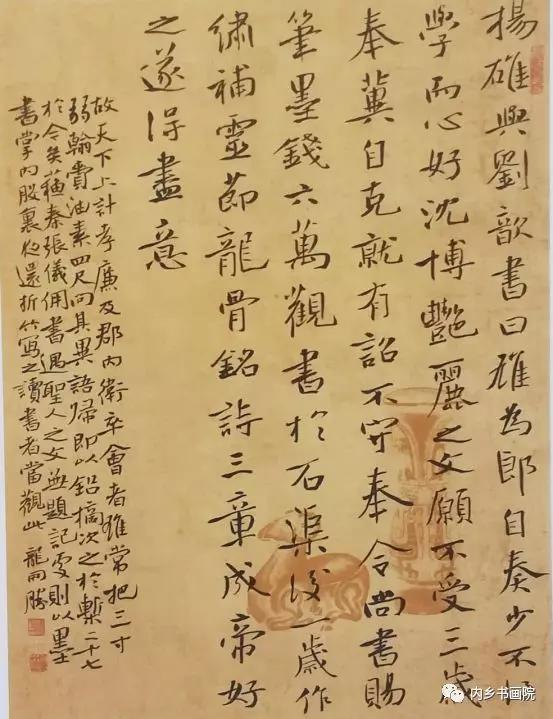 揚雄與劉歆書曰雄為郎自奏少不得
學而心好沈博艷麗之文願不受三歲
奉冀自克就有詔不守奉令尚書賜
筆墨錢六萬觀書於石渠後一歲作
繡補靈節龍骨銘詩三章成帝好
之遂得盡意
故天下上計孝廉及郡內衛卒會者雄常把三寸
弱翰賫油素四尺問其異語歸即以鉛摘次之於槧二十七
於今矣蘇秦張儀傭書遇聖人之文無題記處則以墨
書掌內股裏夜還折竹寫之讀書者當觀此 龍開勝
内乡书画院